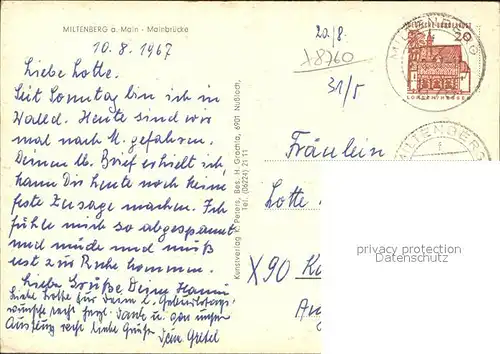 MILTENBERG a. Main - Mainbrücke
10.8.1967
Liebe Lotte.
Seit Sonntag bin ich in
Walld. Heute sind wir
mal nach M. gefahren.
Deinen lb. Brief erhielt ich,
kann Dir heute noch keine
feste Zusage machen. Ich
fühle mich so abgespannt
und müde und muß
erst zur Ruhe kommen.
Liebe Grüße Deine Hanni
Liebe Lotte für Deine l. Geburtstags-
wünsche recht herzl. Dank u. von unserem
Ausflug recht liebe Grüße
Dein Gretel
Kunstverlag K. Peters, Bes. H. Grachla, 6901 Nußloch,
Tel. (06224) 21 11
20./8.
18760
31/5
DEUTSCHE BUNDESPOST
20
LORSCH/HESSEN
MILTENBERG
MILTENBERG
Fräulein
Lotte
X90
privacy protection
Datenschutz